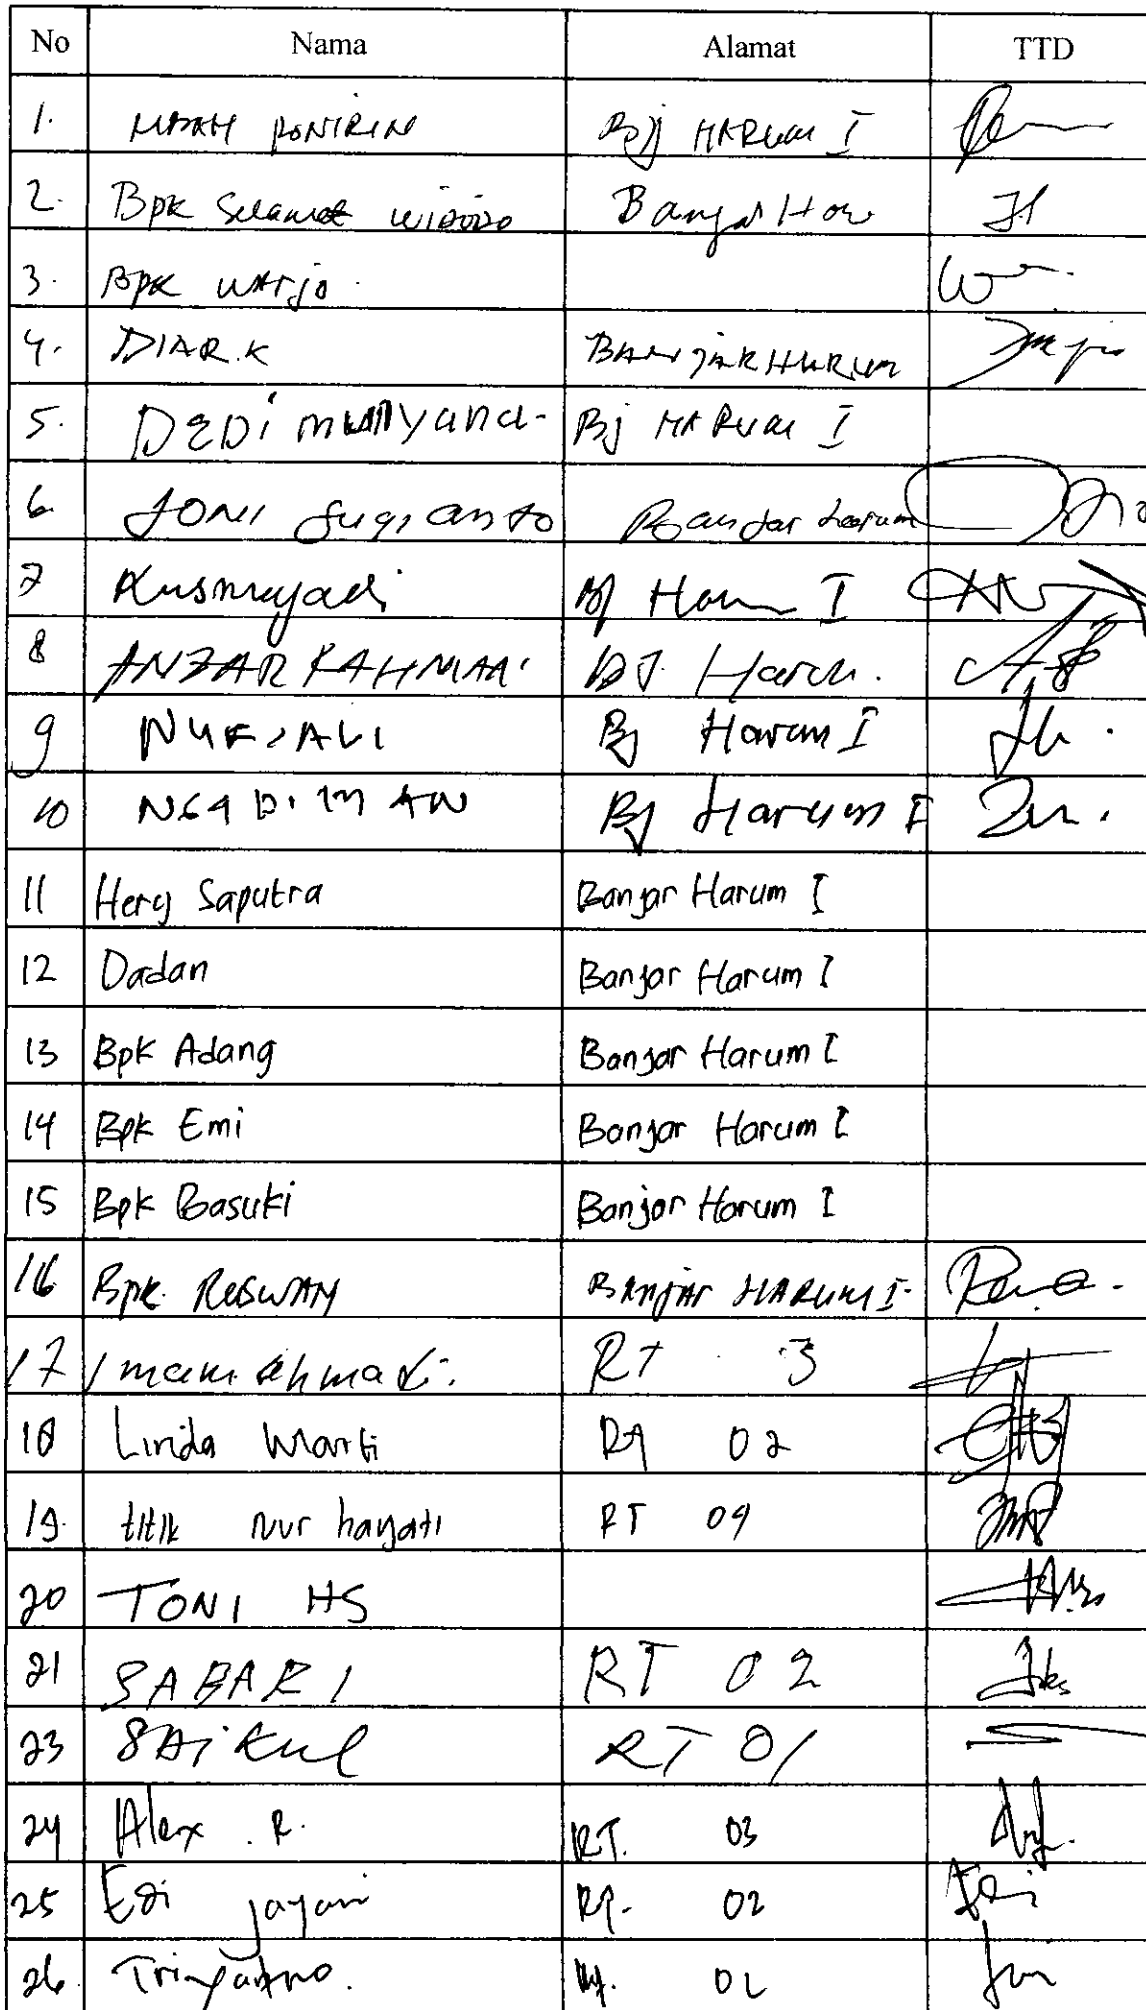 No Nama Alamat TTD
1. MBAH PONIRIN Bj HARUM I
2. Bpk Selamet widodo Banjar Har
3. Bpk warjo
4. DIAR.K BANJARHARUM
5. DEDi mulyana Bj HARUM I
6 JONI Sugianto Banjar harum
7 Kusmayadi Bj Harum I
8 ANZAR RAHMAN BJ. Harum.
9 NURJALI Bj Harum I
10 NGADIMAN Bj Harum I
11 Hery Saputra Banjar Harum I
12 Dadan Banjar Harum I
13 Bpk Adang Banjar Harum I
14 Bpk Emi Banjar Harum I
15 Bpk Basuki Banjar Harum I
16 Bpk. ReSWAN BANjAr HARUM I
17 Imam ahmadi RT 3
18 Linda Warti RT 02
19. titik Nur hayati RT 04
20 TONI HS
21 SABARI RT 02
23 SAiKul RT 01
24 Alex .R. RT. 03
25 Edi jayani RT. 02
26. RT.